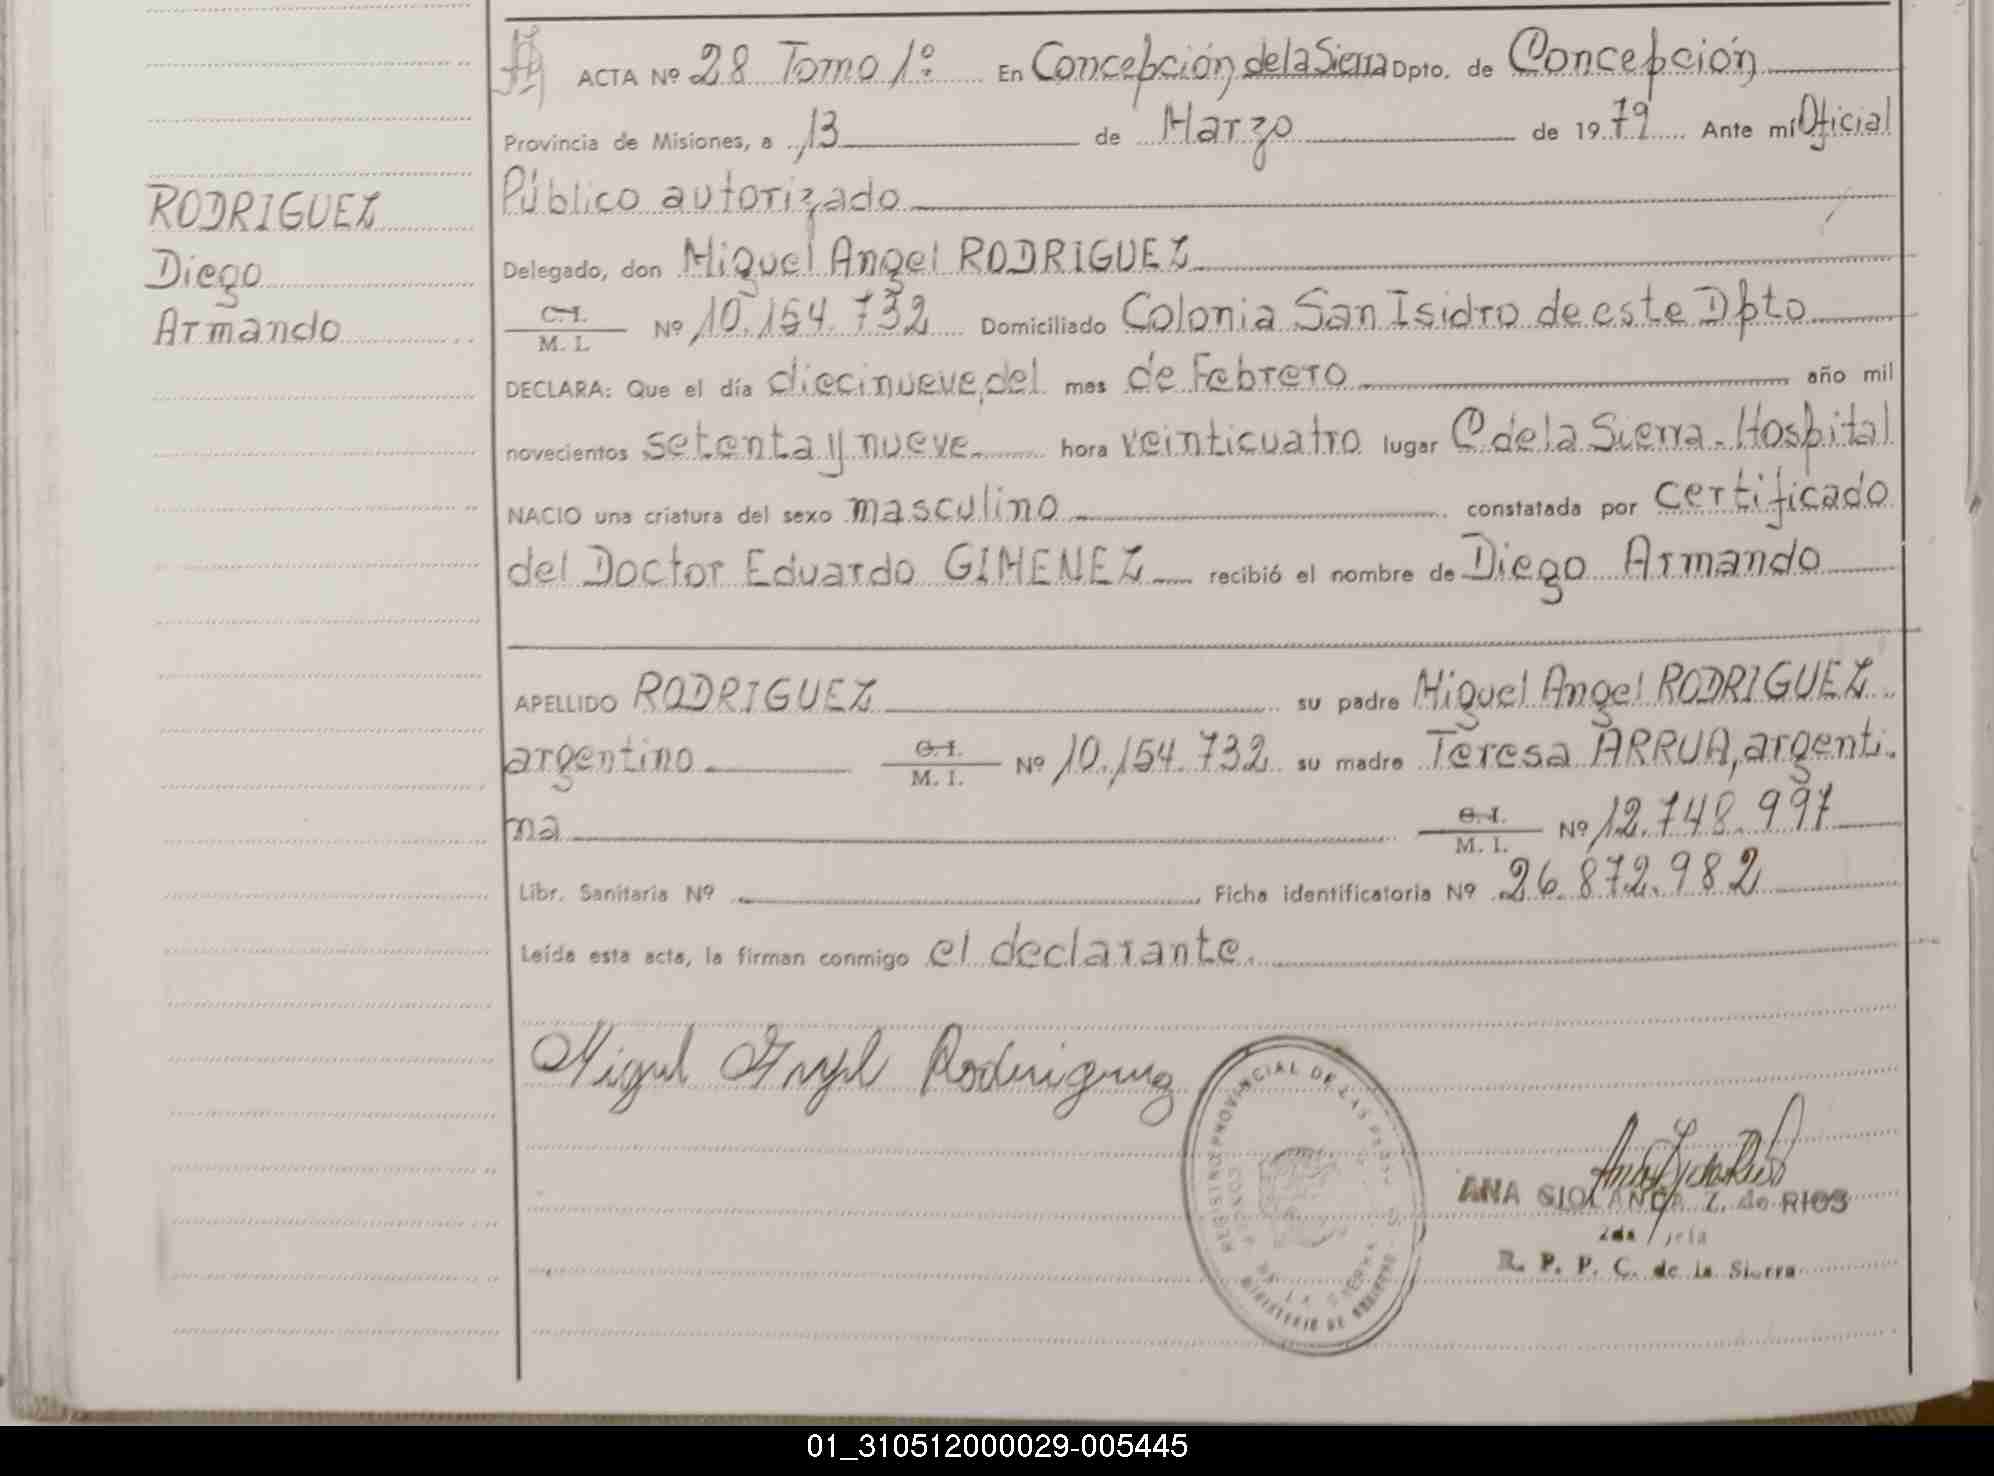 ACTA Nº 28 Tomo 1º En Concepción de la Sierra Dpto. de Concepción
Provincia de Misiones, a 13 de Marzo de 1979 Ante mí Oficial
Público autorizado
RODRIGUEZ
Diego
Armando
Delegado, don Miguel Angel RODRIGUEZ
C. I.
M. I. Nº 10.154.732 Domiciliado Colonia San Isidro de este Dpto
DECLARA: Que el día diecinueve, del mes de Febrero año mil
novecientos setenta y nueve hora veinticuatro lugar C de la Sierra - Hospital
NACIO una criatura del sexo masculino constatada por certificado
del Doctor Eduardo GIMENEZ recibió el nombre de Diego Armando
APELLIDO RODRIGUEZ su padre Miguel Angel RODRIGUEZ
argentino C. I. M. I. Nº 10.154.732 su madre Teresa ARRUA, argenti-
na C. I. M. I. Nº 12.748.997
Libr. Sanitaria Nº Ficha identificatoria Nº 26.872.982
Leída esta acta, la firman conmigo el declarante.
Miguel Angel Rodriguez
PROVINCIAL DE LAS
DE LA SIERRA
MINISTERIO DE GOBIERNO
ANA Z. de RIOS
2da Jefa
R. P. P. C. de la Sierra
01_310512000029-005445